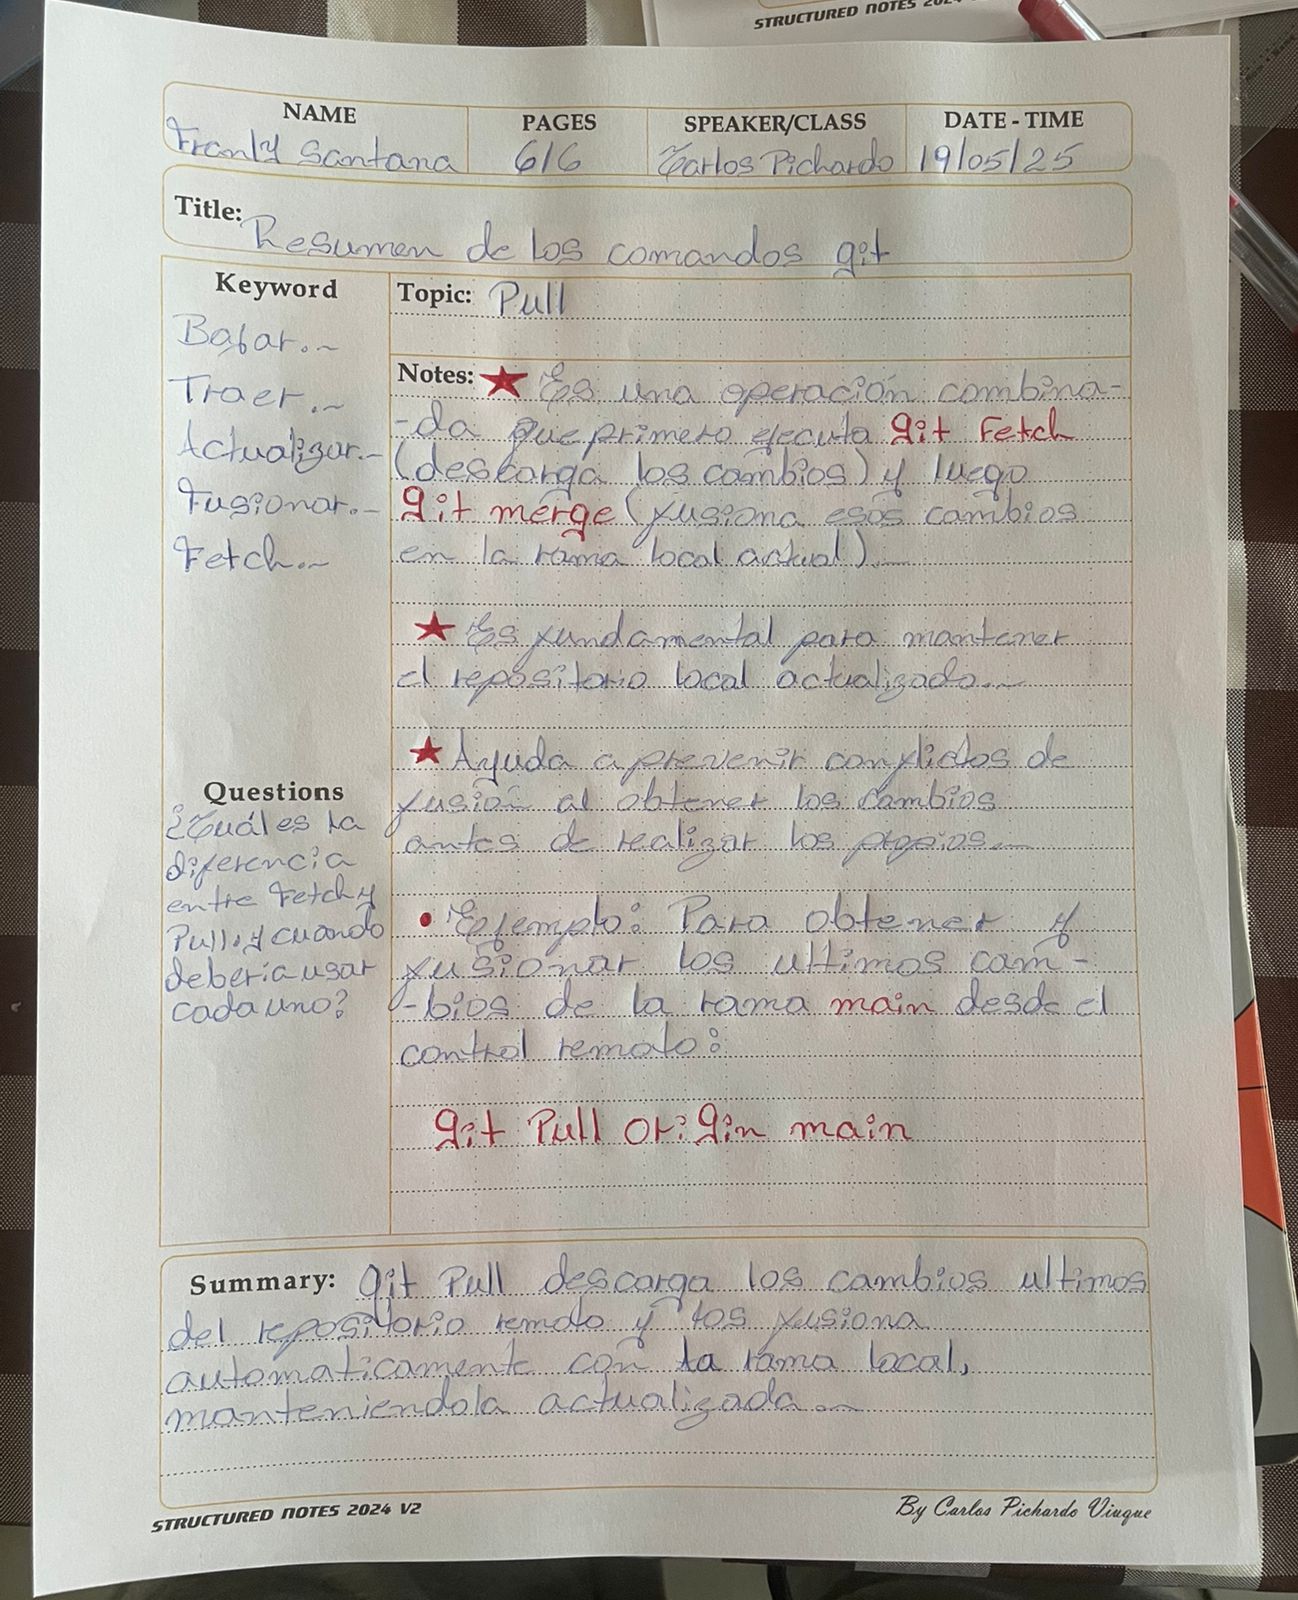 STRUCTURED NOTES 2024
NAME
PAGES
SPEAKER/CLASS
DATE - TIME
Franly Santana
6/6
Carlos Pichardo
19/05/25
Title:
Resumen de los comandos git
Keyword
Bajar.~
Traer.~
Actualizar.~
Fusionar.~
Fetch.~
Questions
¿Cuál es la
diferencia
entre Fetch y
Pull, y cuando
deberia usar
cada uno?
Topic: Pull
Notes: ★ Es una operación combina-
-da que primero ejecuta git Fetch
(descarga los cambios) y luego
git merge (fusiona esos cambios
en la rama local actual).~
★ Es fundamental para mantener
el repositorio local actualizado.~
★ Ayuda a prevenir conflictos de
fusión al obtener los cambios
antes de realizar los propios.~
• Ejemplo: Para obtener y
fusionar los ultimos cam-
-bios de la rama main desde el
control remoto:
git Pull origin main
Summary: git Pull descarga los cambios ultimos
del repositorio remoto y los fusiona
automaticamente con la rama local,
manteniendola actualizada.~
STRUCTURED NOTES 2024 V2
By Carlos Pichardo Viuque